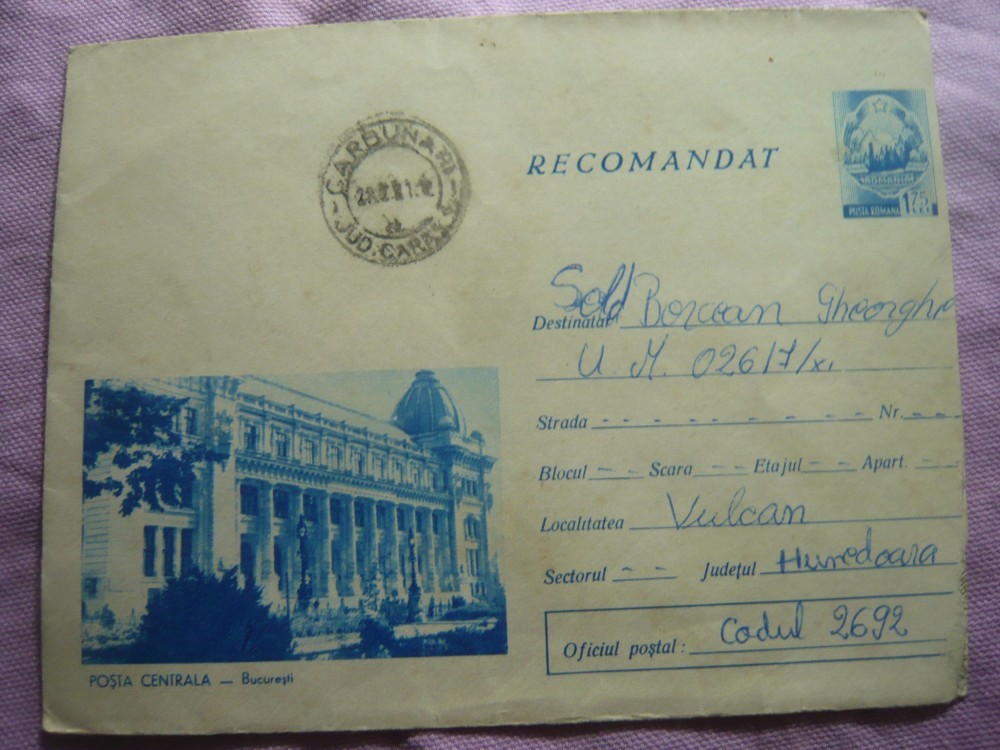 CARBUNARI
JUD. CARAȘ S.
RECOMANDAT
POSTA ROMANA 1,75 LEI
Destinatar Sold Borcean Gheorghe
U. M. 02617/XI
Strada - - - - - - - - Nr. - -
Blocul - - Scara - - Etajul - - Apart. - -
Localitatea Vulcan
Sectorul - - Județul Hunedoara
Oficiul poștal: Codul 2692
POȘTA CENTRALA — București